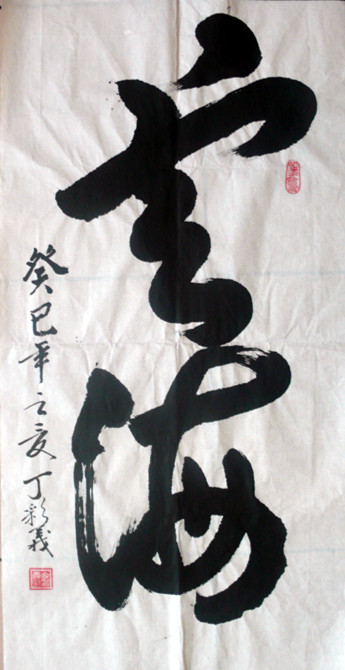 雲海
癸巳年之夏丁彩義